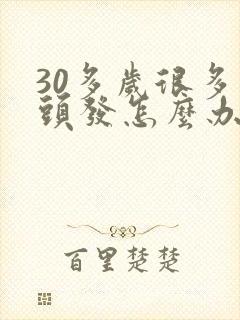 30多歲很多
頭發怎麼办
百里楚楚